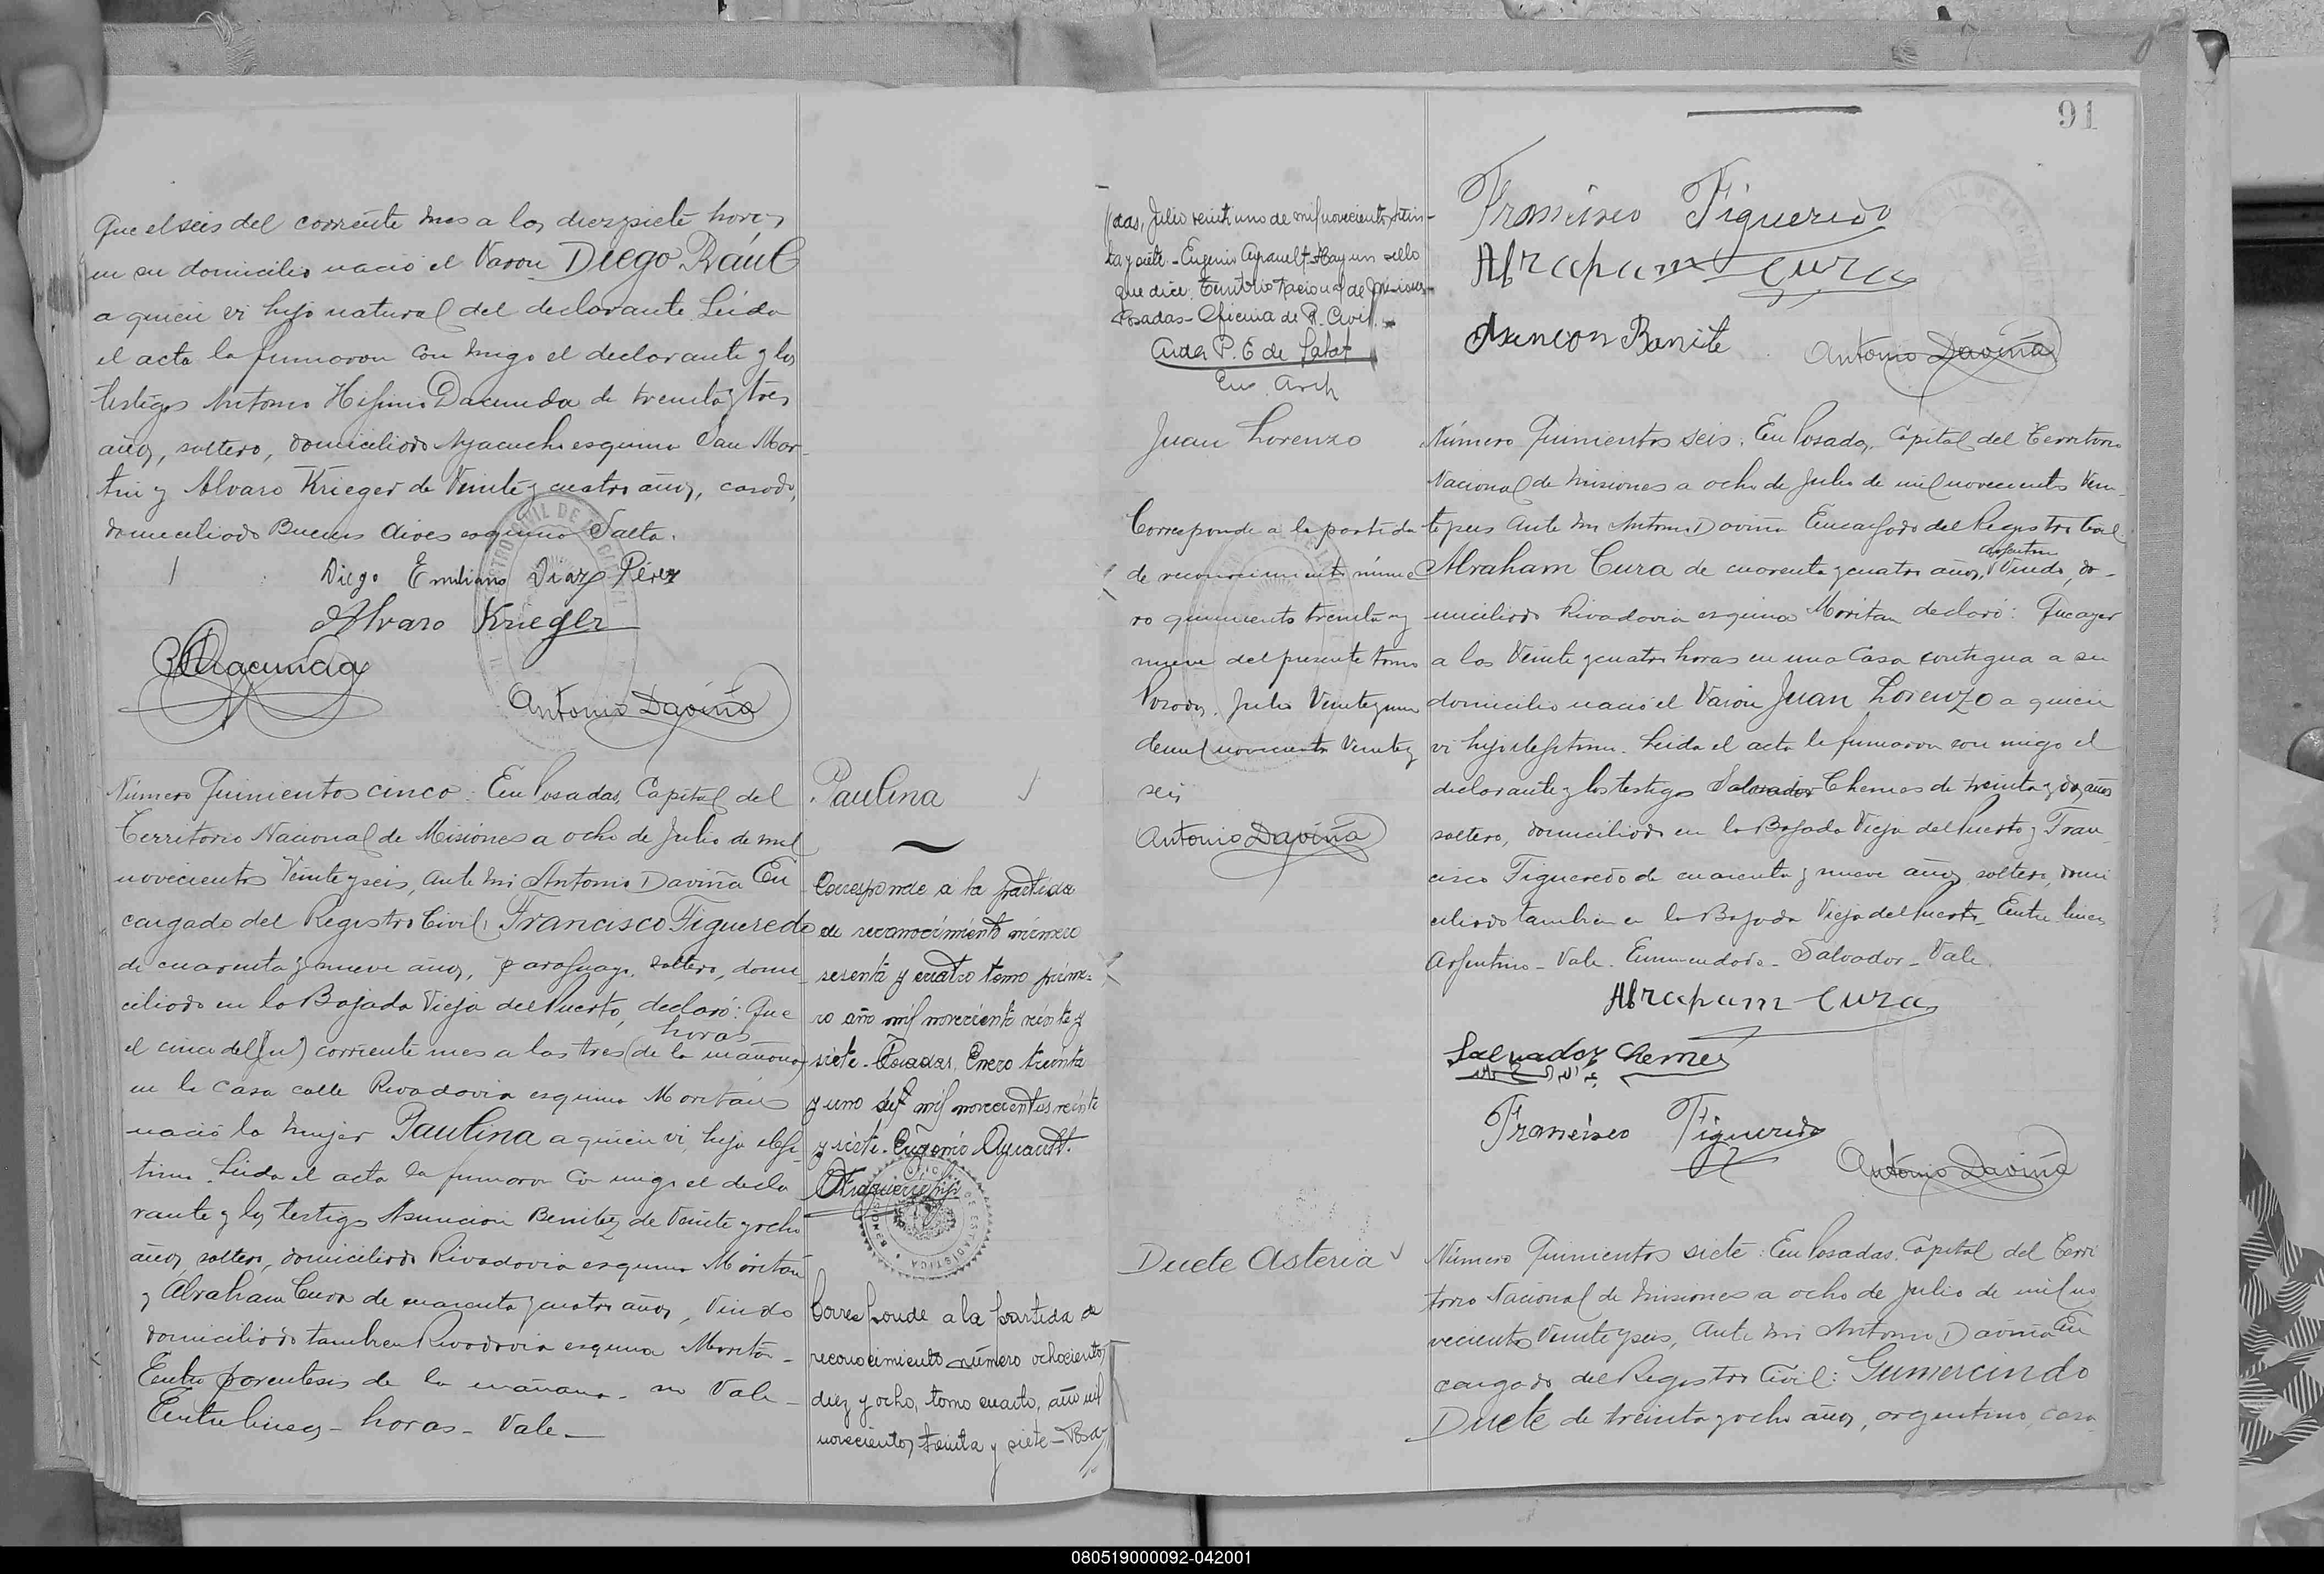 Que el seis del corriente mes a las diez y siete horas
en su domicilio nació el Varon Diego Raúl
a quien vi hijo natural del declarante. Leida
el acta la firmaron con migo el declarante y los
testigos Antonio Dacunda de treinta y tres
años, soltero, domiciliado Ayacucho esquina San Mar-
tin y Alvaro Krieger de Veinte y cuatro años, casado,
domiciliado Buenos Aires esquina Salta.
Diego Emiliano Diaz Pérez
Alvaro Krieger
Antonio Daviña
Número Quinientos cinco: En Posadas, Capital del
Territorio Nacional de Misiones a ocho de Julio de mil
novecientos Veinte y seis, ante mi Antonio Daviña En
cargado del Registro Civil: Francisco Figueredo
de cuarenta y nueve años, paraguayo, soltero, domi
ciliado en la Bajada Vieja del Puerto, declaró: Que
horas
el cinco del corriente mes a las tres (de la mañana)
en la Casa calle Rivadavia esquina Moritán
nació la mujer Paulina a quien vi, hija ilegi-
tima. Leida el acta la firmaron con migo el decla
rante y los testigos Asuncion Benitez de Veinte y ocho
años, soltero, domiciliado Rivadavia esquina Moritán
y Abraham Cura de cuarenta y cuatro años, Viudo
domiciliado tambien Rivadavia esquina Moritán -
Entre parentesis de la mañana - no Vale -
Entre lineas - horas - Vale -
Paulina
Corresponde a la partida
de reconocimiento número
sesenta y cuatro tomo prime-
ro año mil novecientos veinte y
siete. Posadas, Enero treinta
y uno de mil novecientos veinte
y siete. Eugenio Ayrault.
Corresponde a la partida de
reconocimiento número ochocientos
diez y ocho, tomo cuarto, año mil
novecientos treinta y siete - Posa-
das, Julio veintiuno de mil novecientos trein-
ta y siete - Eugenio Ayrault - Hay un sello
que dice: Territorio Nacional de Misiones -
Posadas - Oficina de R. Civil.
Aida P. E de
Enc Arch
Juan Lorenzo
Corresponde a la partida
de reconocimiento núme
ro quinientos treinta y
nueve del presente tomo
Posadas, Julio Veinte y uno
de mil novecientos Veinte y
seis
Antonio Daviña
Duete Asteria
91
Francisco Figueredo
Abraham Cura
Asuncion Benite
Antonio Daviña
Número Quinientos seis: En Posadas, Capital del Territorio
Nacional de Misiones a ocho de Julio de mil novecientos Vein-
te y seis Ante mi Antonio Daviña Encargado del Registro Civil
argentino
Abraham Cura de cuarenta y cuatro años, Viudo, do-
miciliado Rivadavia esquina Moritan declaró: Que ayer
a las Veinte y cuatro horas en una Casa contigua a su
domicilio nació el Varon Juan Lorenzo a quien
vi hijo ilegitimo. Leida el acta la firmaron con migo el
declarante y los testigos Salvador Chemes de treinta y dos años
soltero, domiciliado en la Bajada Vieja del Puerto y Fran
cisco Figueredo de cuarenta y nueve años soltero, domi
ciliado tambien en la Bajada Vieja del Puerto. Entre lineas
Argentino - Vale. Enmendado - Salvador - Vale.
Abraham Cura
Salvador Chemes
Francisco Figueredo
Antonio Daviña
Número Quinientos siete: En Posadas, Capital del Terri
torio Nacional de Misiones a ocho de Julio de mil no
vecientos Veinte y seis, Ante mi Antonio Daviña En
cargado del Registro Civil: Gumercindo
Duete de treinta y ocho años, argentino, casa
080519000092-042001